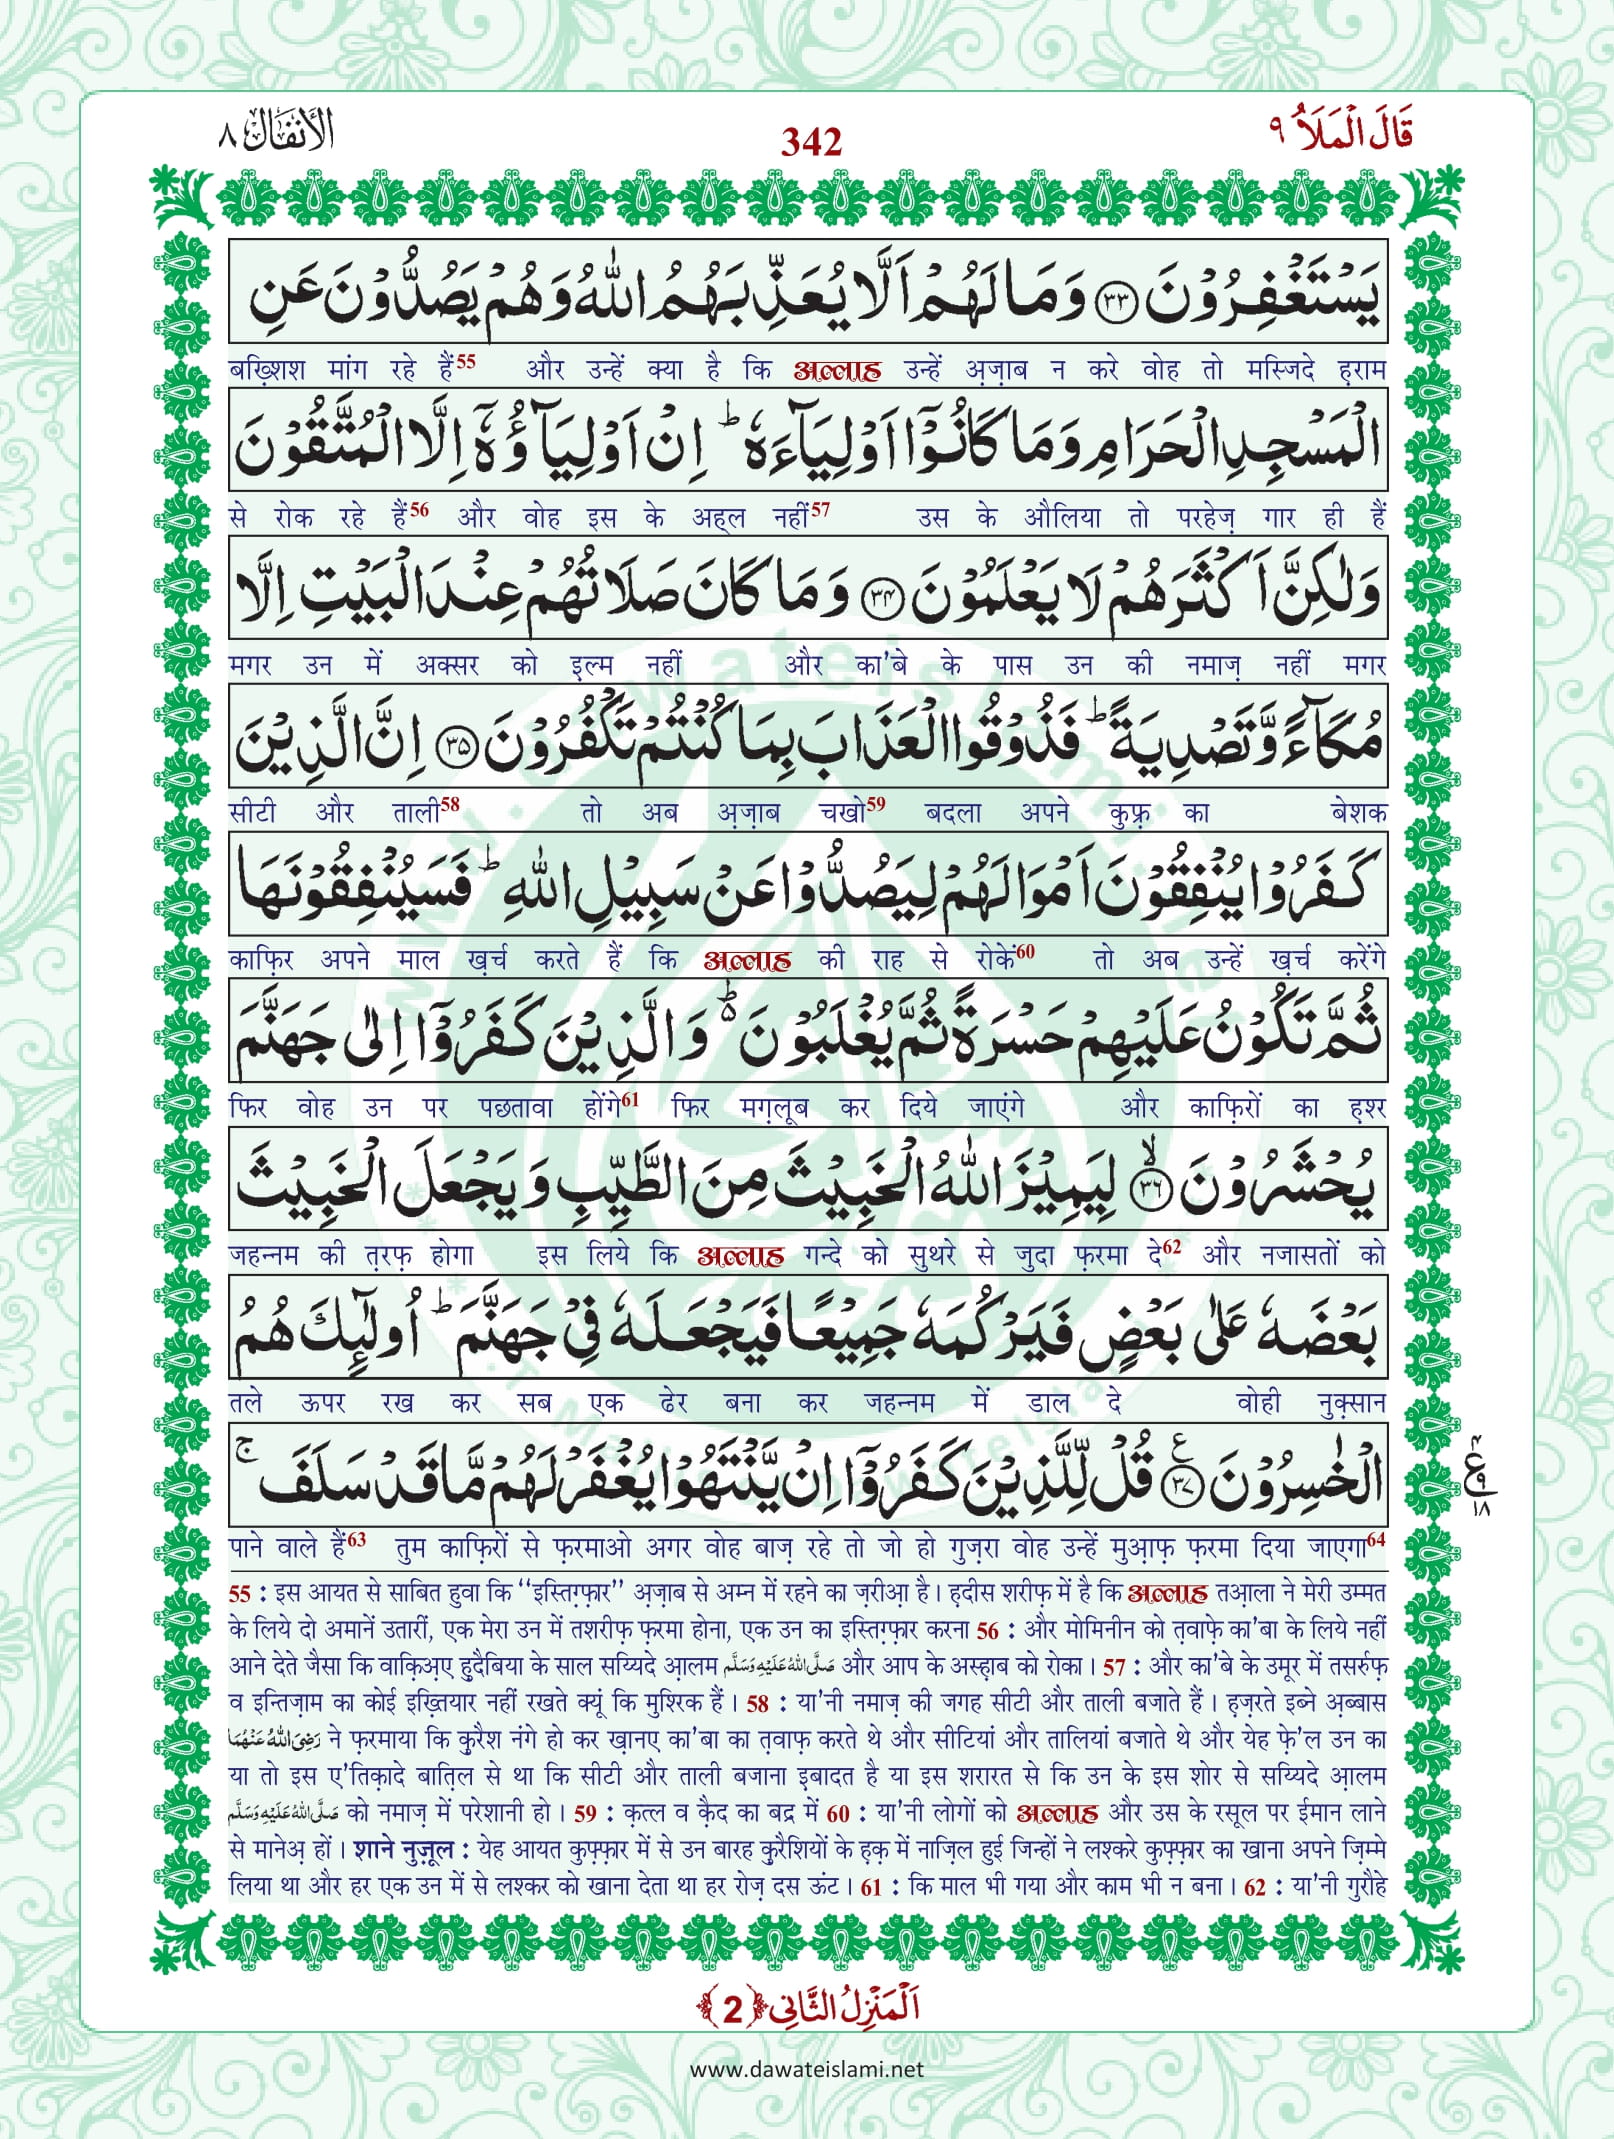 الأنفال ٨
342
قَالَ الْمَلَأُ ٩
یَسْتَغْفِرُوْنَ ﴿۳۳﴾ وَمَا لَهُمْ اَلَّا یُعَذِّبَهُمُ اللّٰهُ وَهُمْ یَصُدُّوْنَ عَنِ
बख़्शिश मांग रहे हैं55 और उन्हें क्या है कि अल्लाह उन्हें अ़ज़ाब न करे वोह तो मस्जिदे ह़राम
الْمَسْجِدِ الْحَرَامِ وَمَا كَانُوْۤا اَوْلِیَآءَهٗ ؕ اِنْ اَوْلِیَآؤُهٗۤ اِلَّا الْمُتَّقُوْنَ
से रोक रहे हैं56 और वोह इस के अहल नहीं57 उस के औलिया तो परहेज़ गार ही हैं
وَلٰكِنَّ اَكْثَرَهُمْ لَا یَعْلَمُوْنَ ﴿۳۴﴾ وَمَا كَانَ صَلَاتُهُمْ عِنْدَ الْبَیْتِ اِلَّا
मगर उन में अक्सर को इ़ल्म नहीं और का'बे के पास उन की नमाज़ नहीं मगर
مُكَآءً وَّتَصْدِیَةً ؕ فَذُوْقُوا الْعَذَابَ بِمَا كُنْتُمْ تَكْفُرُوْنَ ﴿۳۵﴾ اِنَّ الَّذِیْنَ
सीटी और ताली58 तो अब अ़ज़ाब चखो59 बदला अपने कुफ़्र का बेशक
كَفَرُوْا یُنْفِقُوْنَ اَمْوَالَهُمْ لِیَصُدُّوْا عَنْ سَبِیْلِ اللّٰهِ ؕ فَسَیُنْفِقُوْنَهَا
काफ़िर अपने माल ख़र्च करते हैं कि अल्लाह की राह से रोकें60 तो अब उन्हें ख़र्च करेंगे
ثُمَّ تَكُوْنُ عَلَیْهِمْ حَسْرَةً ثُمَّ یُغْلَبُوْنَ ؕ۬ وَالَّذِیْنَ كَفَرُوْۤا اِلٰی جَهَنَّمَ
फिर वोह उन पर पछतावा होंगे61 फिर मग़्लूब कर दिये जाएंगे और काफ़िरों का ह़श्र
یُحْشَرُوْنَ ﴿ۙ۳۶﴾ لِیَمِیْزَ اللّٰهُ الْخَبِیْثَ مِنَ الطَّیِّبِ وَیَجْعَلَ الْخَبِیْثَ
जहन्नम की त़रफ़ होगा इस लिये कि अल्लाह गन्दे को सुथरे से जुदा फ़रमा दे62 और नजासतों को
بَعْضَهٗ عَلٰی بَعْضٍ فَیَرْكُمَهٗ جَمِیْعًا فَیَجْعَلَهٗ فِیْ جَهَنَّمَ ؕ اُولٰٓئِكَ هُمُ
तले ऊपर रख कर सब एक ढेर बना कर जहन्नम में डाल दे वोही नुक़्सान
الْخٰسِرُوْنَ ﴿۳۷﴾ ع قُلْ لِّلَّذِیْنَ كَفَرُوْۤا اِنْ یَّنْتَهُوْا یُغْفَرْ لَهُمْ مَّا قَدْ سَلَفَ ۚ
۴ ع ۹ ۱۸
पाने वाले हैं63 तुम काफ़िरों से फ़रमाओ अगर वोह बाज़ रहे तो जो हो गुज़रा वोह उन्हें मुआ़फ़ फ़रमा दिया जाएगा64
55 : इस आयत से साबित हुवा कि ‘‘इस्तिग़्फ़ार’’ अ़ज़ाब से अम्न में रहने का ज़रीआ़ है। ह़दीस शरीफ़ में है कि अल्लाह तआ़ला ने मेरी उम्मत
के लिये दो अमानें उतारीं, एक मेरा उन में तशरीफ़ फ़रमा होना, एक उन का इस्तिग़्फ़ार करना 56 : और मोमिनीन को त़वाफ़े का'बा के लिये नहीं
आने देते जैसा कि वाक़िअ़ए हु़दैबिया के साल सय्यिदे आ़लम صَلَّی اللّٰهُ عَلَیْهِ وَسَلَّم और आप के अस्ह़ाब को रोका। 57 : और का'बे के उमूर में तसर्रुफ़
व इन्तिज़ाम का कोई इख़्तियार नहीं रखते क्यूं कि मुश्रिक हैं। 58 : या'नी नमाज़ की जगह सीटी और ताली बजाते हैं। ह़ज़रते इब्ने अ़ब्बास
رَضِیَ اللّٰهُ عَنْهُمَا ने फ़रमाया कि क़ुरैश नंगे हो कर ख़ानए का'बा का त़वाफ़ करते थे और सीटियां और तालियां बजाते थे और येह फ़े'ल उन का
या तो इस ए'तिक़ादे बात़िल से था कि सीटी और ताली बजाना इ़बादत है या इस शरारत से कि उन के इस शोर से सय्यिदे आ़लम
صَلَّی اللّٰهُ عَلَیْهِ وَسَلَّم को नमाज़ में परेशानी हो। 59 : क़त्ल व क़ैद का बद्र में 60 : या'नी लोगों को अल्लाह और उस के रसूल पर ईमान लाने
से मानेअ़ हों। शाने नुज़ूल : येह आयत कुफ़्फ़ार में से उन बारह क़ुरैशियों के ह़क़ में नाज़िल हुई जिन्हों ने लश्करे कुफ़्फ़ार का खाना अपने ज़िम्मे
लिया था और हर एक उन में से लश्कर को खाना देता था हर रोज़ दस ऊंट। 61 : कि माल भी गया और काम भी न बना। 62 : या'नी गुरौहे
اَلْمَنْزِلُ الثَّانِی ﴿2﴾
www.dawateislami.net